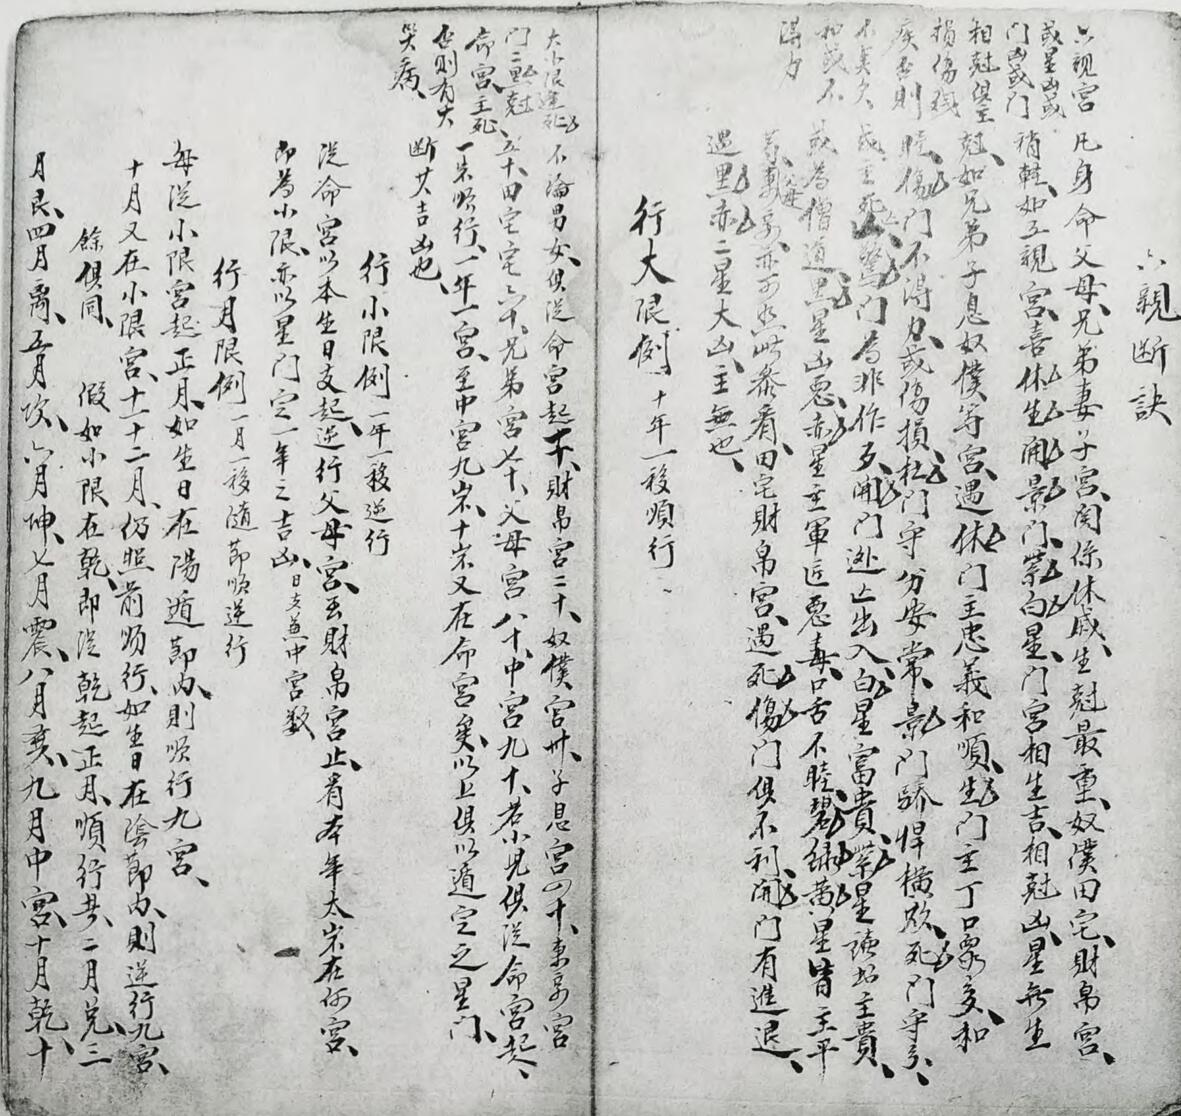 六親断訣
六親宮
或星凶或
门凶或门
相尅俱主
損傷残
疾否則
不矣欠
和或不
得力
凡身命父母、兄弟妻子宮、関係休戚、生尅最重、奴僕田宅、財帛宮、
稍軽、如五親宮、喜休生開景门、紫白星、门宮相生吉、相尅凶、星無生
尅、如兄弟子息奴僕等宮、遇休门主忠義和順、生门主丁口衆多、和
睦、傷门不得力、或傷損、杜门守分安常、景门驕悍橫放、死门守分、
或主死亡、驚门為非作歹、開门逃亡出入、白星富貴、紫星讀书主貴、
或為僧道、黑星凶惡、赤星主軍匠惡毒、口舌不睦、碧綠黃星皆主平
等、妻父母京、亦可照此叅看、田宅財帛宮、遇死傷门俱不利、開门有進退、
遇黑赤二星大凶、主無也、
行大限例 十年一移順行
大小限逢死
门二黑尅
命宮主死、
否則有大
災病、
不論男女、俱従命宮起一十、財帛宮二十、奴僕宮卅、子息宮四十、妻京宮
五十、田宅宅六十、兄弟宮七十、父母宮八十、中宮九十、若小児俱従命宮起、
一岁順行、一年一宮、至中宮九岁、十岁又在命宮矣、以上俱以遁定之星门、
断其吉凶也、
行小限例 一年一移逆行
従命宮以本生日支起、逆行父母宮、至財帛宮止、看本年太岁在何宮、
即為小限、亦以星门定一年之吉凶、日支並中宮数
行月限例 一月一移隨節順逆行
每従小限宮起正月、如生日在陽遁節内、則順行九宮、
十月又在小限宮、十一十二月、仍照前順行、如生日在陰節内、則逆行九宮、
餘俱同、 假如小限在乾、即従乾起正月、順行共、二月兌、三
月艮、四月离、五月坎、六月坤、七月震、八月巽、九月中宮、十月乾、十